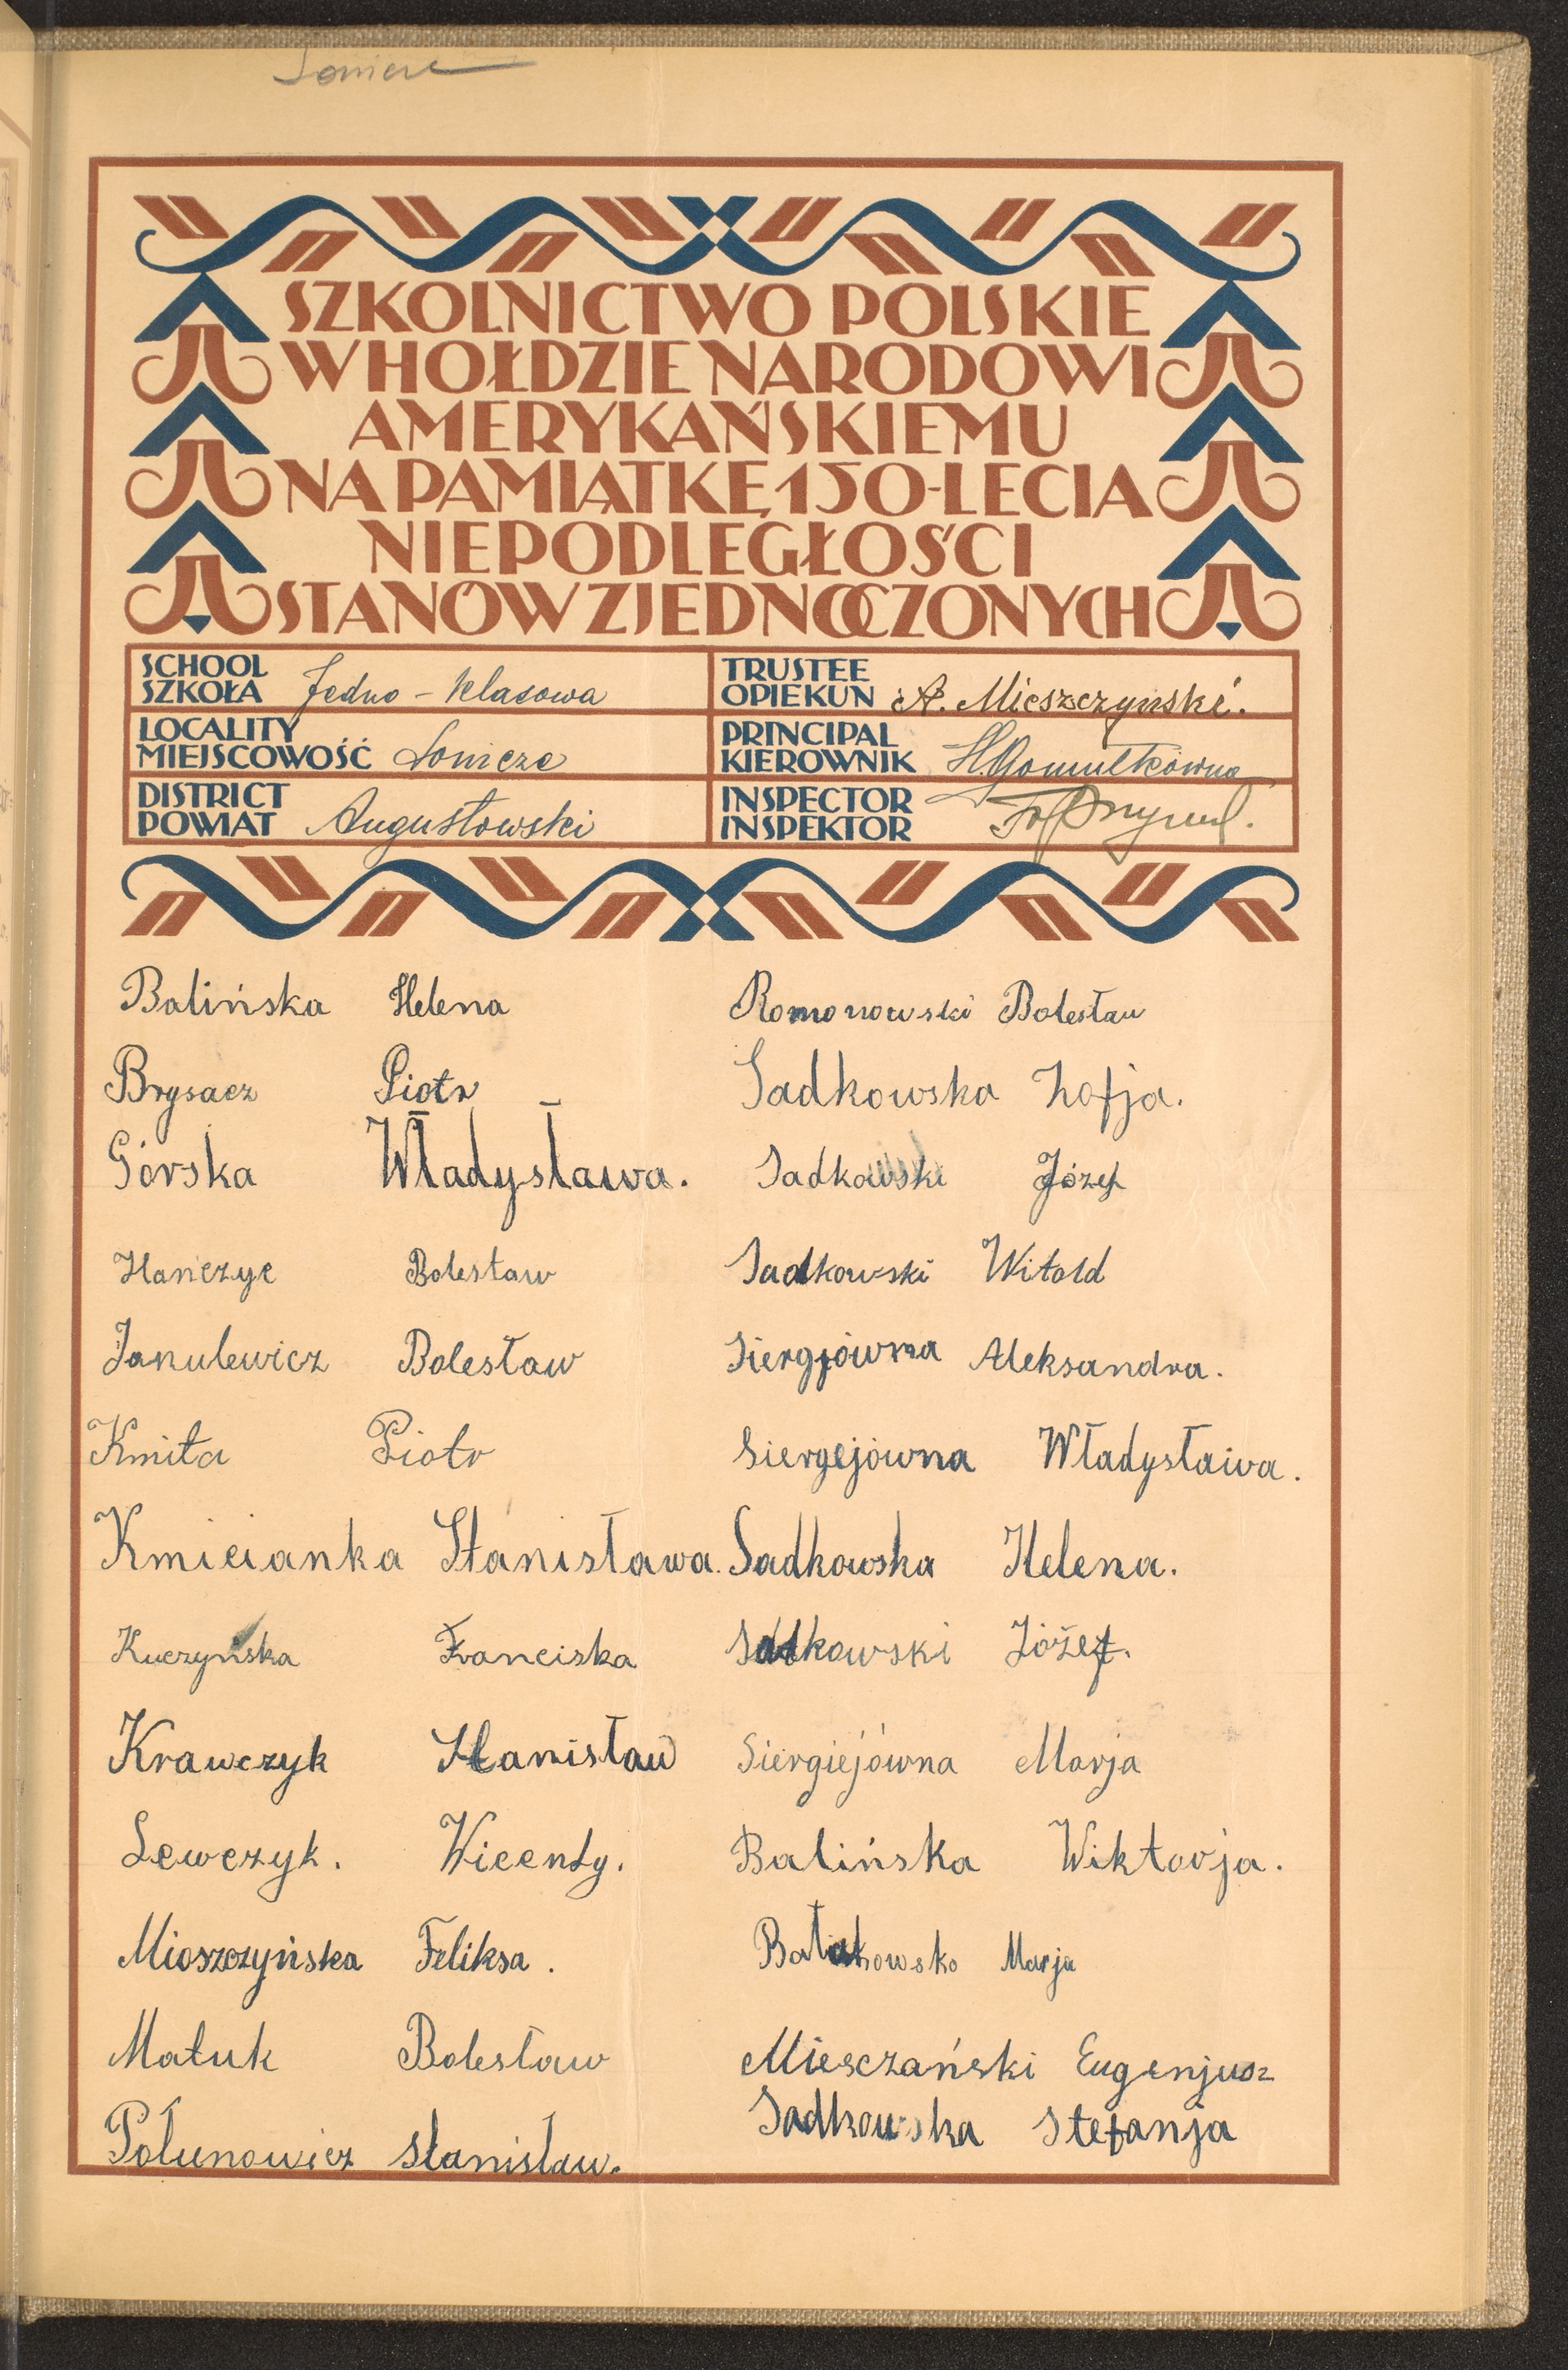 SZKOLNICTWO POLSKIE
W HOŁDZIE NARODOWI
AMERYKAŃSKIEMU
NA PAMIĄTKĘ 150-LECIA
NIEPODLEGŁOŚCI
STANÓW ZJEDNOCZONYCH
SCHOOL
SZKOŁA Jedno - klasowa
LOCALITY
MIEJSCOWOŚĆ Sonicze
DISTRICT
POWIAT Augustowski
TRUSTEE
OPIEKUN A. Mieszczyński.
PRINCIPAL
KIEROWNIK H. Gomułkówna
INSPECTOR
INSPEKTOR
Balińska Helena
Brysacz Piotr
Górska Władysława.
Hańczyc Bolesław
Janulewicz Bolesław
Kmita Piotr
Kmicianka Stanisława.
Kuczyńska Franciska
Krawczyk Stanisław
Lewczyk. Wicenty.
Mioszczyńska Feliksa.
Matuk Bolesław
Połunowicz Stanisław.
Romonowski Bolesław
Sadkowska Zofja.
Sadkowski Józef
Sadkowski Witold
Siergjówna Aleksandra.
Siergejówna Władysława.
Sadkowska Helena.
Sadkowski Józef.
Siergiejówna Marja
Balińska Wiktorja.
Bałakowska Marja
Miesczański Eugenjusz
Sadkowska Stefanja